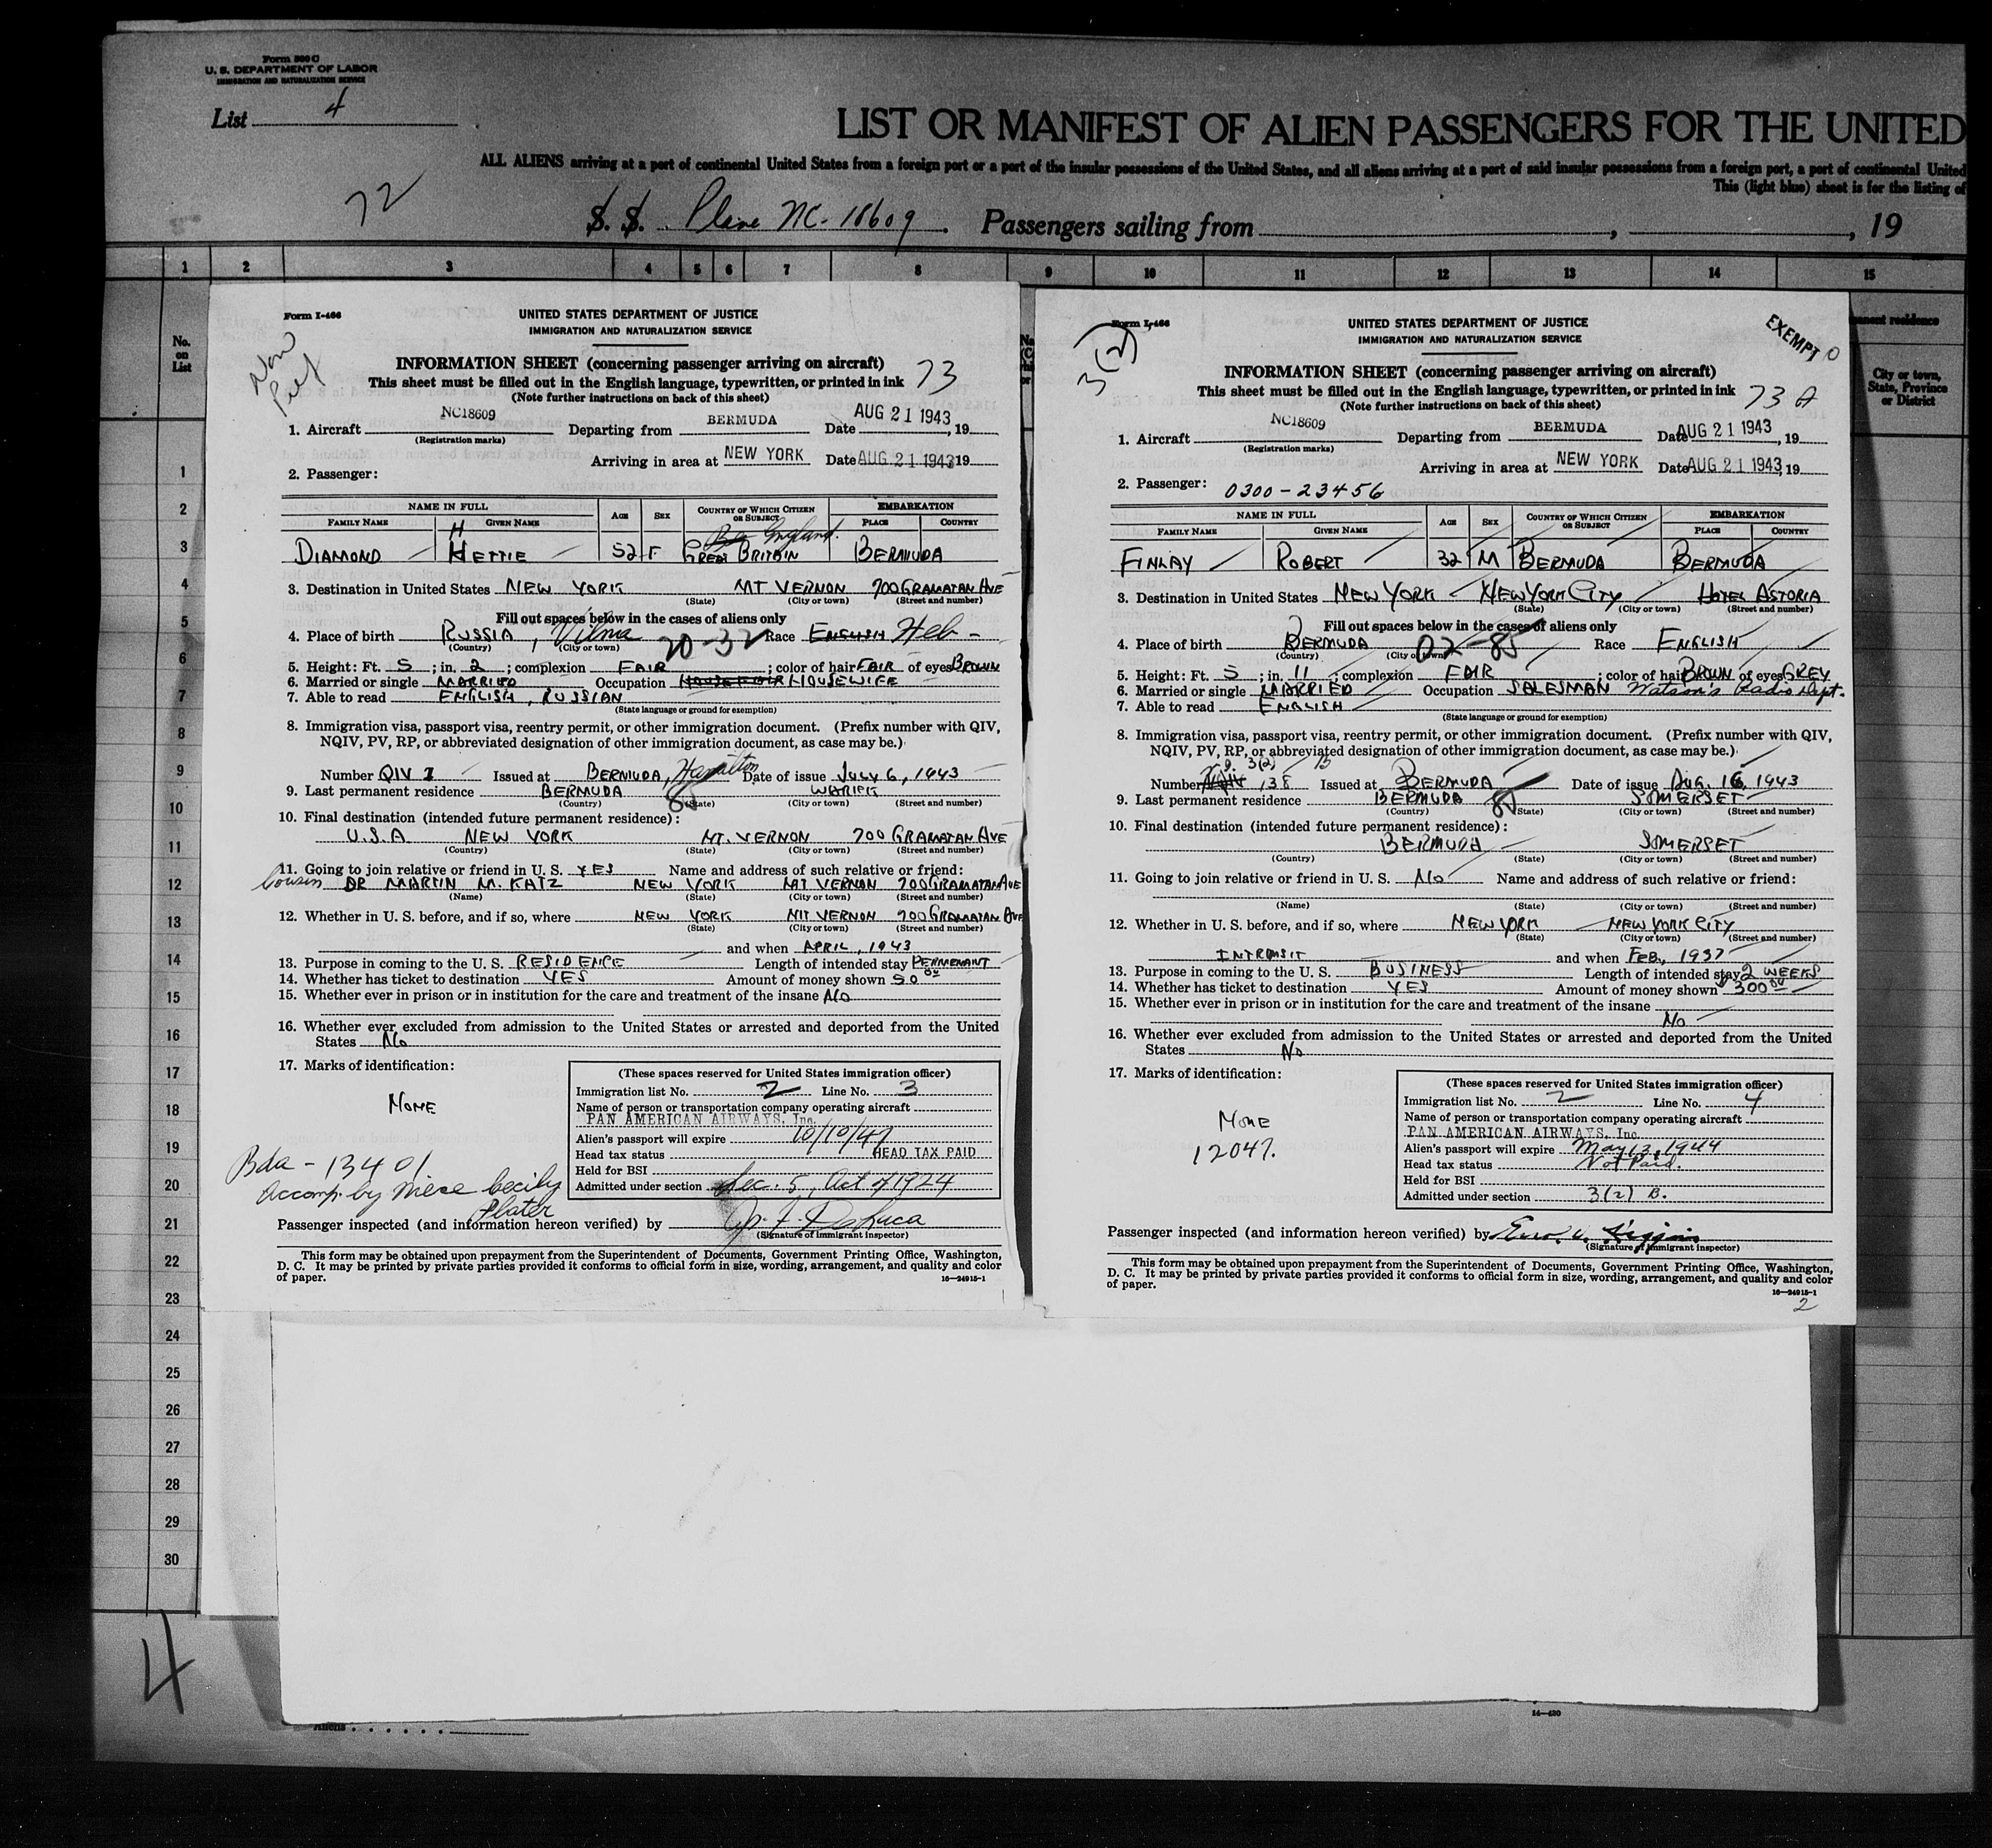 Form 500 C
U. S. DEPARTMENT OF LABOR
IMMIGRATION AND NATURALIZATION SERVICE
List 4
LIST OR MANIFEST OF ALIEN PASSENGERS FOR THE UNITED
ALL ALIENS arriving at a port of continental United States from a foreign port or a port of the insular possessions of the United States, and all aliens arriving at a port of said insular possessions from a foreign port, a port of continental United
This (light blue) sheet is for the listing of
72
S. S. Plane NC-18609. Passengers sailing from , , 19
1 2 3 4 5 6 7 8 9 10 11 12 13 14 15
No. on List
1
2
3
4
5
6
7
8
9
10
11
12
13
14
15
16
17
18
19
20
21
22
23
24
25
26
27
28
29
30
Form I-466
UNITED STATES DEPARTMENT OF JUSTICE
IMMIGRATION AND NATURALIZATION SERVICE
INFORMATION SHEET (concerning passenger arriving on aircraft) 73
This sheet must be filled out in the English language, typewritten, or printed in ink
(Note further instructions on back of this sheet)
1. Aircraft NC18609 Departing from BERMUDA Date AUG 21 1943, 19
(Registration marks)
Arriving in area at NEW YORK Date AUG 21 1943 19
2. Passenger:
NAME IN FULL AGE SEX COUNTRY OF WHICH CITIZEN OR SUBJECT EMBARKATION
FAMILY NAME GIVEN NAME PLACE COUNTRY
H England.
DIAMOND HETTIE 52 F GREAT BRITAIN BERMUDA
3. Destination in United States NEW YORK MT VERNON 700 GRAMATAN AVE
(State) (City or town) (Street and number)
Fill out spaces below in the cases of aliens only
4. Place of birth RUSSIA, Vilma 20-32 Race ENGLISH Heb-
(Country) (City or town)
5. Height: Ft. 5; in. 2; complexion FAIR; color of hair FAIR of eyes BROWN
6. Married or single MARRIED Occupation HOUSEWIFE
7. Able to read ENGLISH, RUSSIAN
(State language or ground for exemption)
8. Immigration visa, passport visa, reentry permit, or other immigration document. (Prefix number with QIV,
NQIV, PV, RP, or abbreviated designation of other immigration document, as case may be.)
Number QIV 1 Issued at BERMUDA, Hamilton Date of issue JULY 6, 1943
9. Last permanent residence BERMUDA 85 WARIPK
(Country) (State) (City or town) (Street and number)
10. Final destination (intended future permanent residence):
U.S.A NEW YORK MT. VERNON 700 GRAMATAN AVE
(Country) (State) (City or town) (Street and number)
11. Going to join relative or friend in U. S. YES Name and address of such relative or friend:
Cousin DR MARTIN M. KATZ NEW YORK MT VERNON 700 GRAMATAN AVE
(Name) (State) (City or town) (Street and number)
12. Whether in U. S. before, and if so, where NEW YORK MT VERNON 700 GRAMATAN AVE
(State) (City or town) (Street and number)
and when APRIL, 1943
13. Purpose in coming to the U. S. RESIDENCE Length of intended stay PERMENANT
14. Whether has ticket to destination YES Amount of money shown 50 00
15. Whether ever in prison or in institution for the care and treatment of the insane No
16. Whether ever excluded from admission to the United States or arrested and deported from the United
States No
17. Marks of identification:
NONE
Bda-13401
Accomp. by niece Cecily Slater
(These spaces reserved for United States immigration officer)
Immigration list No. 2 Line No. 3
Name of person or transportation company operating aircraft
PAN AMERICAN AIRWAYS, Inc.
Alien's passport will expire 10/10/47
Head tax status HEAD TAX PAID
Held for BSI
Admitted under section Sec. 5, Act of 1924
Passenger inspected (and information hereon verified) by
(Signature of immigrant inspector)
This form may be obtained upon prepayment from the Superintendent of Documents, Government Printing Office, Washington,
D. C. It may be printed by private parties provided it conforms to official form in size, wording, arrangement, and quality and color
of paper. 16—24915-1
Form I-466
3(2)
EXEMPT
UNITED STATES DEPARTMENT OF JUSTICE
IMMIGRATION AND NATURALIZATION SERVICE
INFORMATION SHEET (concerning passenger arriving on aircraft)
This sheet must be filled out in the English language, typewritten, or printed in ink 73 A
(Note further instructions on back of this sheet)
1. Aircraft NC18609 Departing from BERMUDA Date AUG 21 1943, 19
(Registration marks)
Arriving in area at NEW YORK Date AUG 21 1943, 19
2. Passenger: 0300-23456
NAME IN FULL AGE SEX COUNTRY OF WHICH CITIZEN OR SUBJECT EMBARKATION
FAMILY NAME GIVEN NAME PLACE COUNTRY
FINLAY ROBERT 32 M BERMUDA BERMUDA
3. Destination in United States NEW YORK NEW YORK CITY HOTEL ASTORIA
(State) (City or town) (Street and number)
Fill out spaces below in the cases of aliens only
4. Place of birth BERMUDA 02-85 Race ENGLISH
(Country) (City or town)
5. Height: Ft. 5; in. 11; complexion FAIR; color of hair BROWN of eyes GREY
6. Married or single MARRIED Occupation SALESMAN Watson's Radio Dept.
7. Able to read ENGLISH
(State language or ground for exemption)
8. Immigration visa, passport visa, reentry permit, or other immigration document. (Prefix number with QIV,
NQIV, PV, RP, or abbreviated designation of other immigration document, as case may be.)
3(2) B
Number 138 Issued at BERMUDA Date of issue AUG. 16, 1943
9. Last permanent residence BERMUDA 85 SOMERSET
(Country) (State) (City or town) (Street and number)
10. Final destination (intended future permanent residence):
BERMUDA SOMERSET
(Country) (State) (City or town) (Street and number)
11. Going to join relative or friend in U. S. No Name and address of such relative or friend:
(Name) (State) (City or town) (Street and number)
12. Whether in U. S. before, and if so, where NEW YORK NEW YORK CITY
(State) (City or town) (Street and number)
INTRNSIT and when FEB., 1937
13. Purpose in coming to the U. S. BUSINESS Length of intended stay 2 WEEKS
14. Whether has ticket to destination YES Amount of money shown $300 00
15. Whether ever in prison or in institution for the care and treatment of the insane
No
16. Whether ever excluded from admission to the United States or arrested and deported from the United
States No
17. Marks of identification:
NONE
12047.
(These spaces reserved for United States immigration officer)
Immigration list No. 2 Line No. 4
Name of person or transportation company operating aircraft
PAN AMERICAN AIRWAYS, Inc.
Alien's passport will expire May 13, 1944
Head tax status Not Paid.
Held for BSI
Admitted under section 3(2) B.
Passenger inspected (and information hereon verified) by
(Signature of immigrant inspector)
This form may be obtained upon prepayment from the Superintendent of Documents, Government Printing Office, Washington,
D. C. It may be printed by private parties provided it conforms to official form in size, wording, arrangement, and quality and color
of paper. 16—24915-1
2
permanent residence
City or town,
State, Province
or District
4
Aliens
14—420